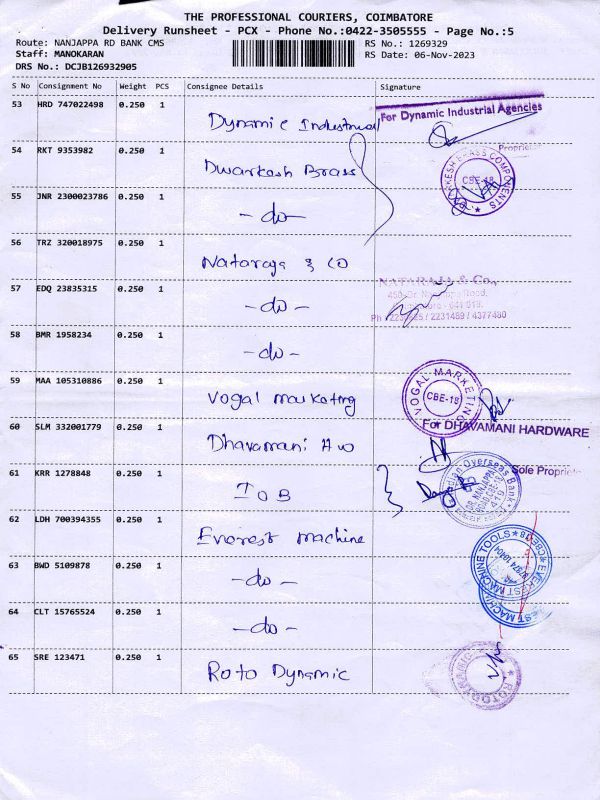 THE PROFESSIONAL COURIERS, COIMBATORE
Delivery Runsheet - PCX - Phone No.:0422-3505555 - Page No.:5
Route: NANJAPPA RD BANK CMS RS No.: 1269329
Staff: MANOKARAN RS Date: 06-Nov-2023
DRS No.: DCJB126932905
S No Consignment No Weight PCS Consignee Details Signature
53 HRD 747022498 0.250 1 Dynamic Industrial
For Dynamic Industrial Agencies
54 RKT 9353982 0.250 1 Dwarkesh Brass
KESH BRASS COMPONENTS
CBE-18
55 JNR 2300023786 0.250 1 -do-
56 TRZ 320018975 0.250 1 Nataraja & Co
57 EDQ 23835315 0.250 1 -do-
NATARAJA & Co.,
Ph 2231489 / 4377480
58 BMR 1958234 0.250 1 -do-
59 MAA 105310886 0.250 1 Vogal marketing
VOGAL MARKETING
CBE-18
60 SLM 332001779 0.250 1 Dhavamani H w
For DHAVAMANI HARDWARE
Sole Propriet
61 KRR 1278848 0.250 1 IOB
Indian Overseas Bank
62 LDH 700394355 0.250 1 Everest machine
EVEREST MACHINE TOOLS
CBE-18
63 BWD 5109878 0.250 1 -do-
64 CLT 15765524 0.250 1 -do-
65 SRE 123471 0.250 1 Roto Dynamic
ROTODYNAMIC